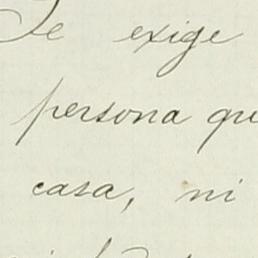 Se exige
persona qu
casa, ni